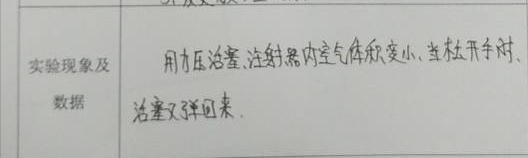 实验现象及
数据
用力压活塞、注射器内空气体积变小、当松开手时、
活塞又弹回来.